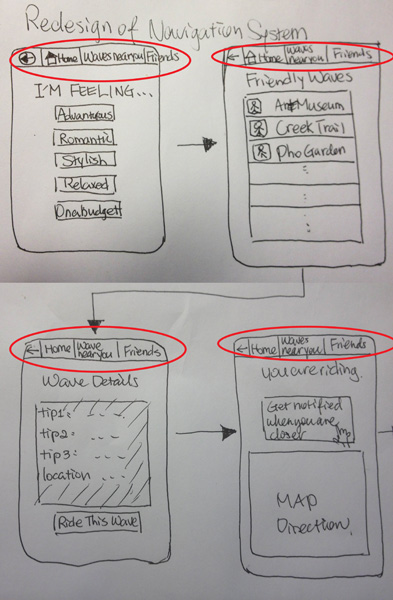 Redesign of Navigation System
Home Waves near you Friends
I'M FEELING...
Advantgous
Romantic
Stylish
Relaxed
On a budgett
Home Waves near you Friends
Friendly Waves
Art Museum
Creek Trail
Pho Garden
Home Wave near you Friends
Wave Details
tip1: - - -
tip2: - - -
tip3: - - -
location - - -
Ride This Wave
Home Waves near you Friends
you are riding.
Get notified
when you are
closer
MAP
Direction.